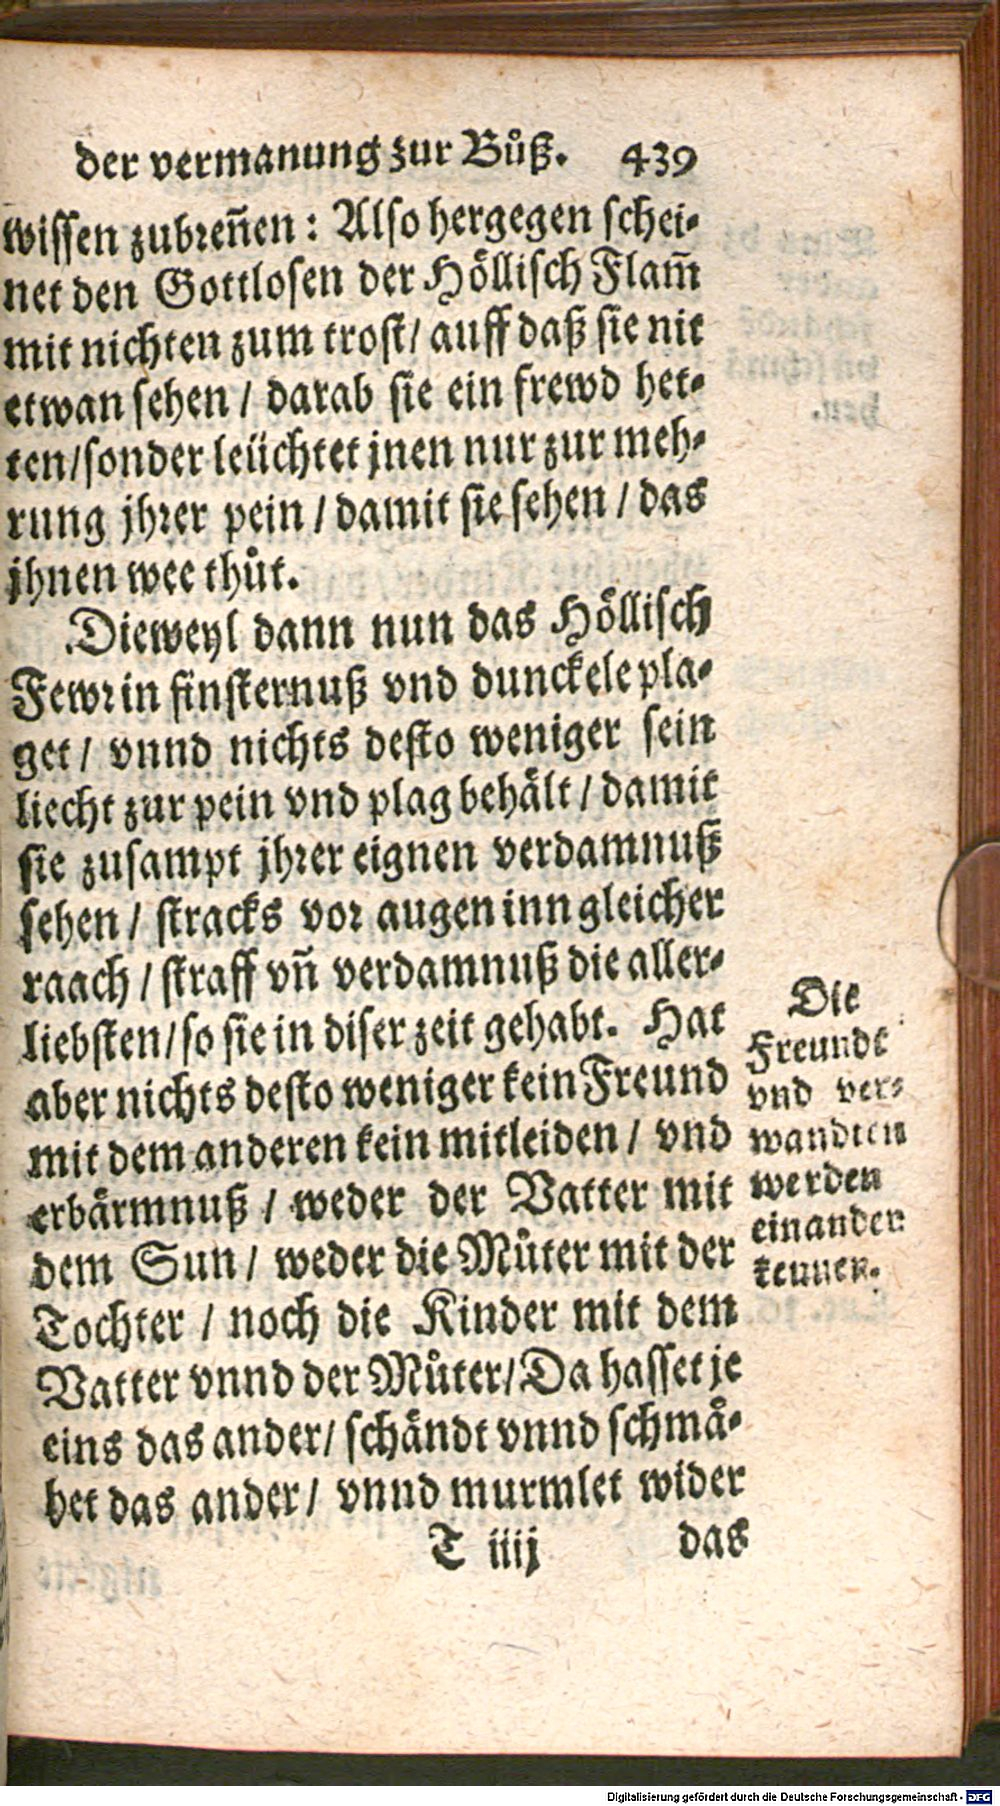 der vermanung zur Bůß. 439
wissen zubreñen: Also hergegen schei⸗
net den Gottlosen der Höllisch Flam̃
mit nichten zum trost/ auff daß sie nit
etwan sehen / darab sie ein frewd het⸗
ten/sonder leüchtet jnen nur zur meh⸗
rung jhrer pein / damit sie sehen / das
jhnen wee thůt.
Dieweyl dann nun das Höllisch
Fewr in finsternuß vnd dunckele pla⸗
get / vnnd nichts desto weniger sein
liecht zur pein vnd plag behält / damit
sie zusampt jhrer eignen verdamnuß
sehen / stracks vor augen inn gleicher
raach / straff vñ verdamnuß die aller⸗
liebsten/so sie in diser zeit gehabt. Hat
aber nichts desto weniger kein Freund
mit dem anderen kein mitleiden / vnd
erbärmnuß / weder der Vatter mit
dem Sun / weder die Můter mit der
Tochter / noch die Kinder mit dem
Vatter vnnd der Můter/Da hasset je
eins das ander/ schändt vnnd schmä⸗
het das ander / vnnd murmlet wider
T iiij das
Die
Freundt
vnd ver⸗
wandten
werden
einander
kennen.
Digitalisierung gefördert durch die Deutsche Forschungsgemeinschaft - DFG